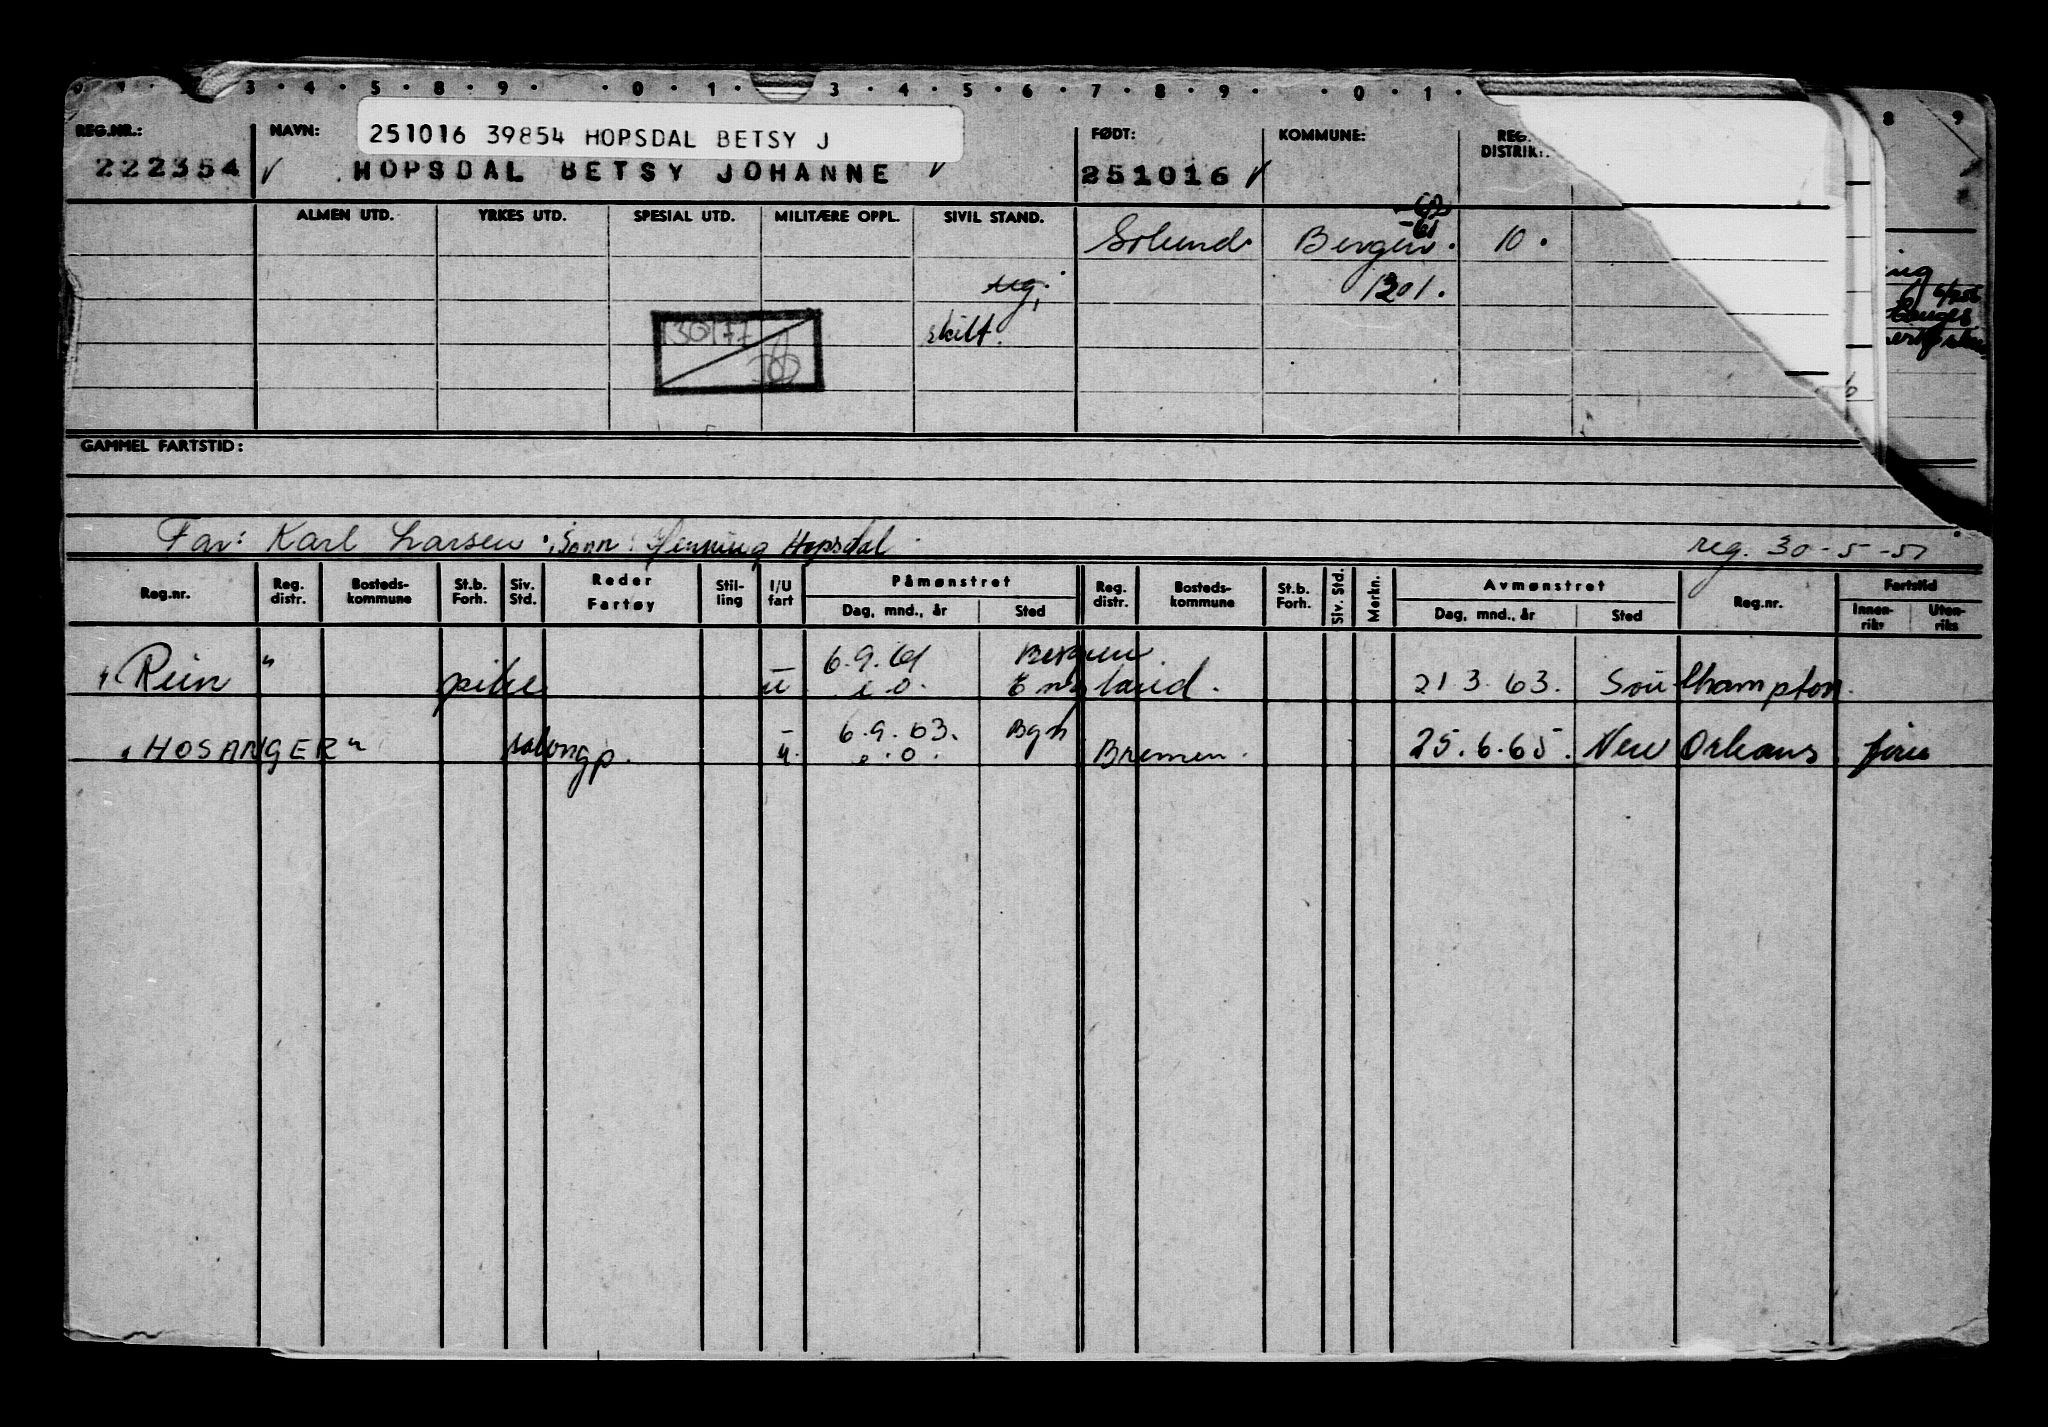 3 4 5 8 9 0 1 3 4 5 6 7 8 9 0 1 8 9
REG.NR.: NAVN: FØDT: KOMMUNE: REG. DISTRIK:
251016 39854 HOPSDAL BETSY J
222354 HOPSDAL BETSY JOHANNE 251016
ALMEN UTD. YRKES UTD. SPESIAL UTD. MILITÆRE OPPL. SIVIL STAND.
-62
-61
Solund. Bergen. 10.
ug. 1201.
skilt.
GAMMEL FARTSTID:
Far: Karl Larsen. Sønn: Henning Hopsdal
reg. 30-5-51
Reg.nr. Reg. distr. Bosteds-kommune St.b. Forh. Siv. Std. Reder Fartøy Stil-ling I/U fart Påmønstret Dag, mnd., år Sted Reg. distr. Bosteds-kommune St.b. Forh. Siv. Std. Merkn. Avmønstret Dag, mnd., år Sted Reg.nr. Fartstid Innen-riks Uten-riks
6.9.61 Bergen
"Rein" pike u e.o. England. 21.3.63. Southampton.
6.9.63. Bgn
"HOSANGER" salongp. u. e.o. Bremen. 25.6.65. New Orleans